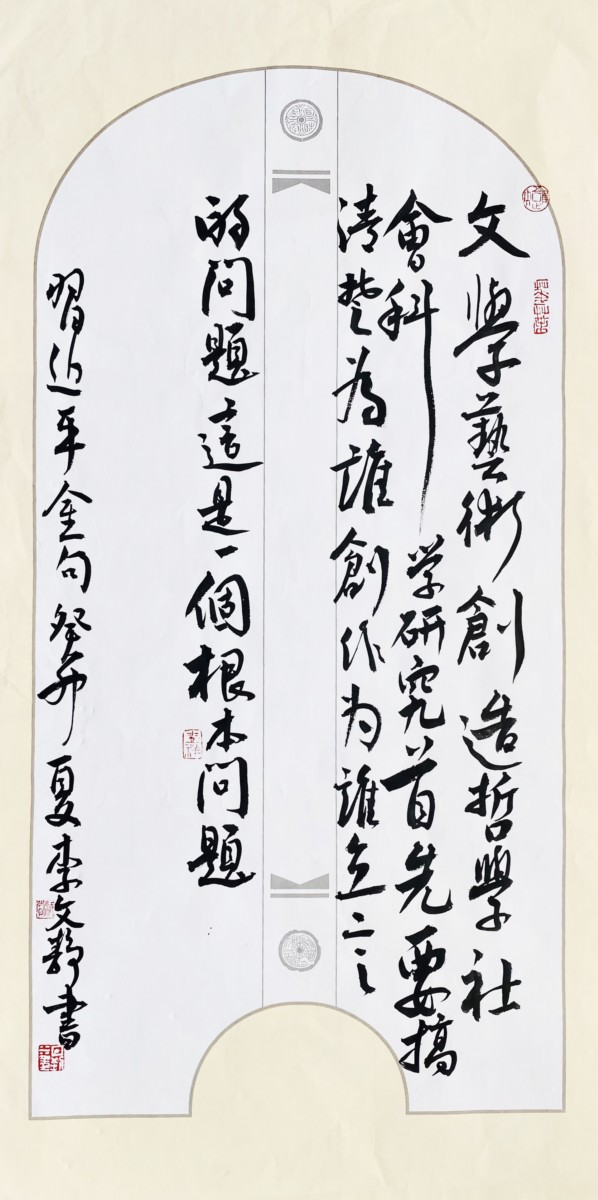 文學藝術創造哲學社
會科学研究首先要搞
清楚為誰創作为誰立言
的問題這是一個根本問題
習近平金句癸卯夏李文靜書